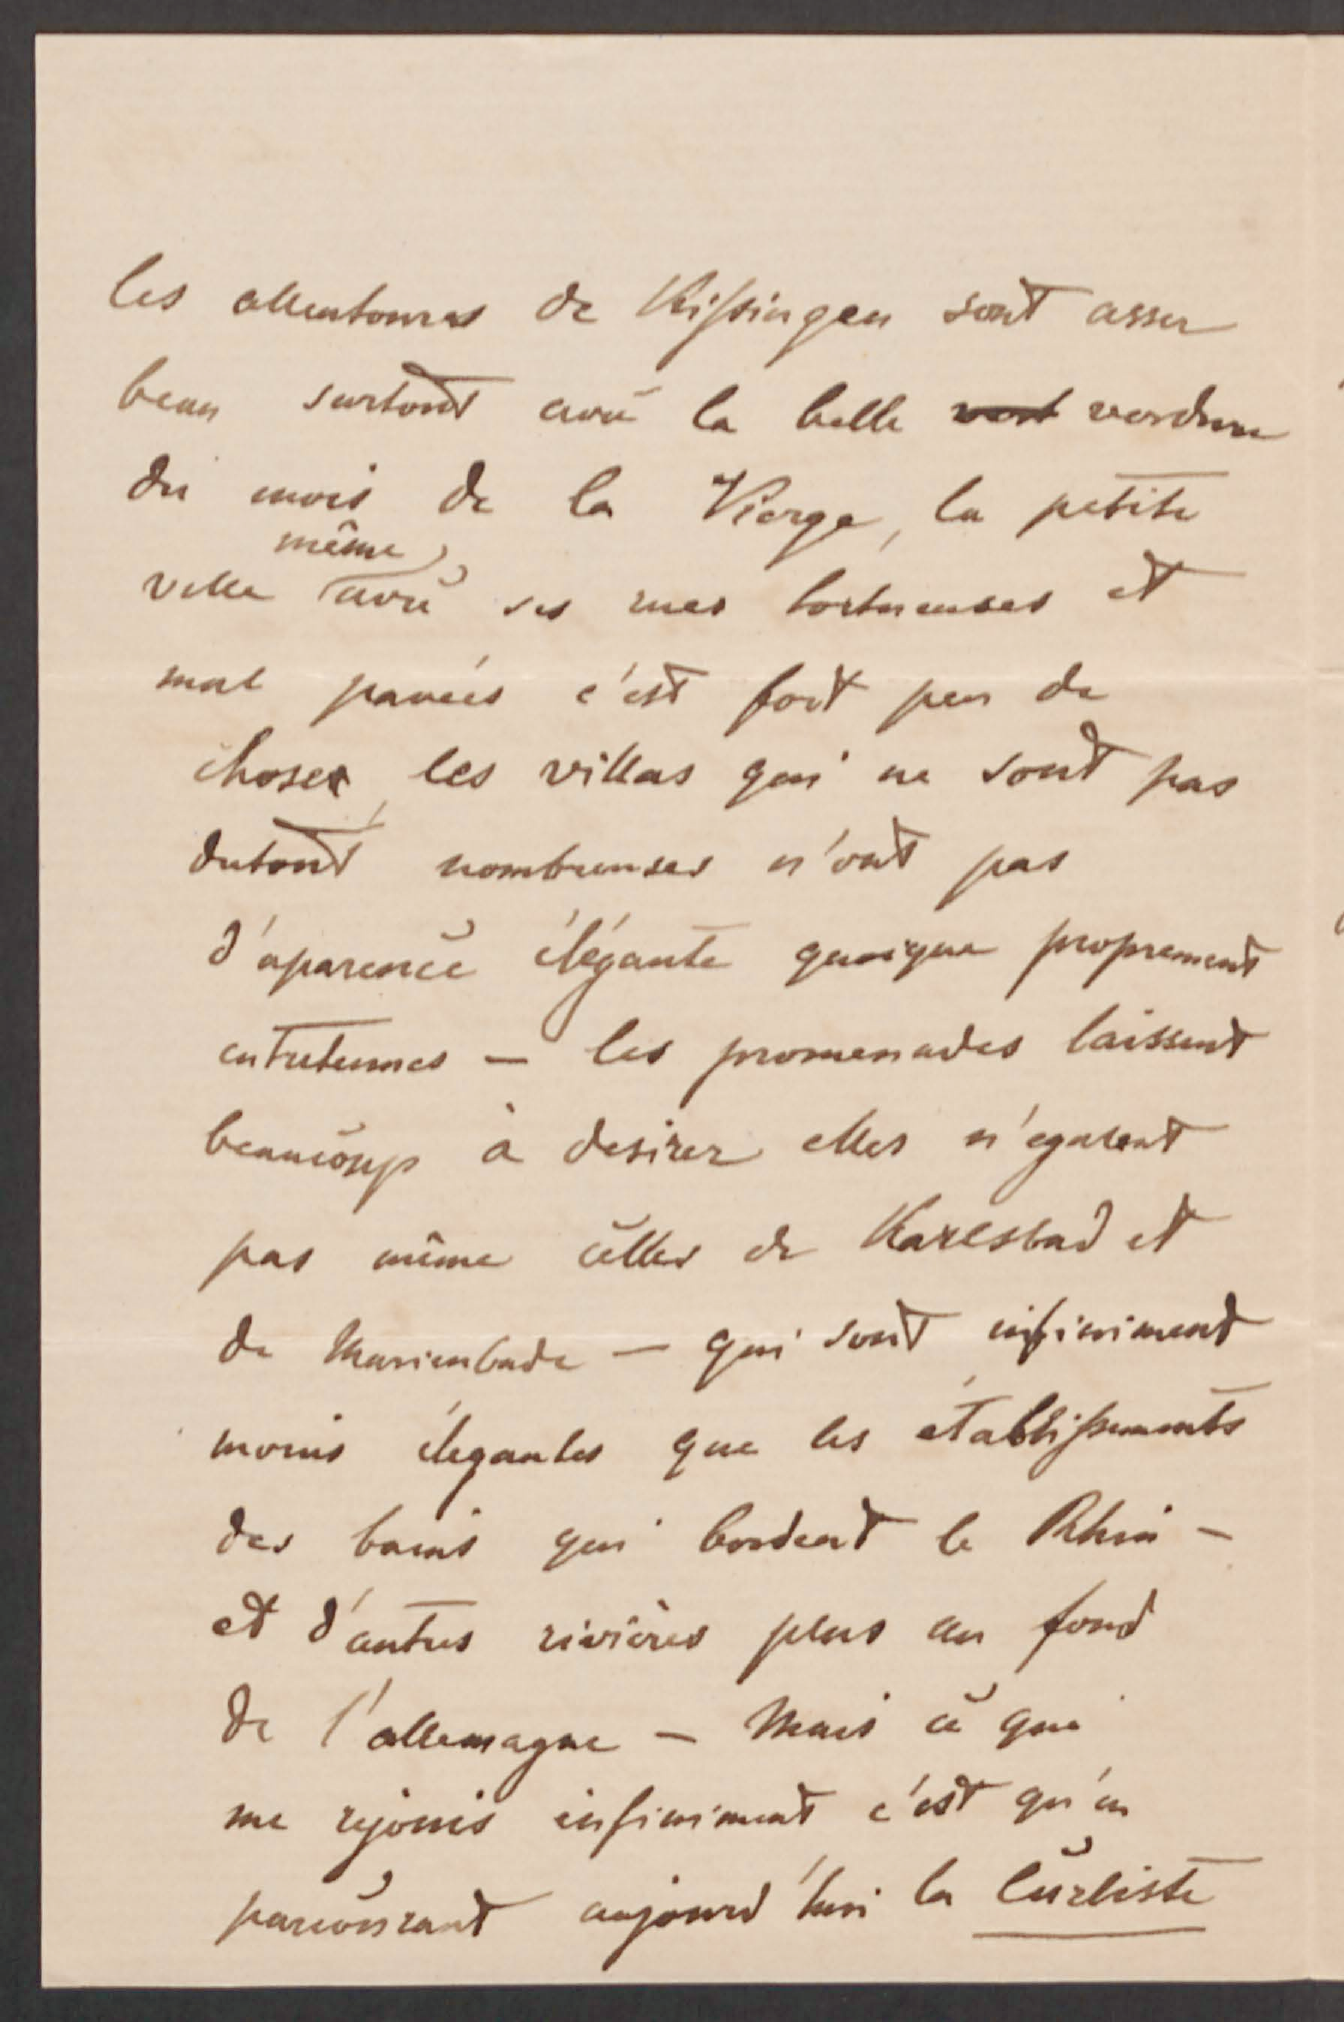 les allentours de Kissingen sont assez
beau surtout avec la belle vert verdure
du mois de la Vierge, la petite
même
ville avec ses rues tortueuses et
mal pavées c'est fort peu de
choses, les villas qui ne sont pas
dutout nombreuses n'ont pas
d'aparence élégante quoique proprement
entretenues — les promenades laissent
beaucoup à desirer elles n'egalent
pas même celles de Karlsbad et
de Marienbade — qui sont infiniment
moins élegantes que les établissements
des bains qui bordent le Rhin —
et d'autres rivières plus au fond
de l'allemagne — Mais ce qui
me rejouis infiniment c'est qu'en
parcourant aujourd'hui la Curliste